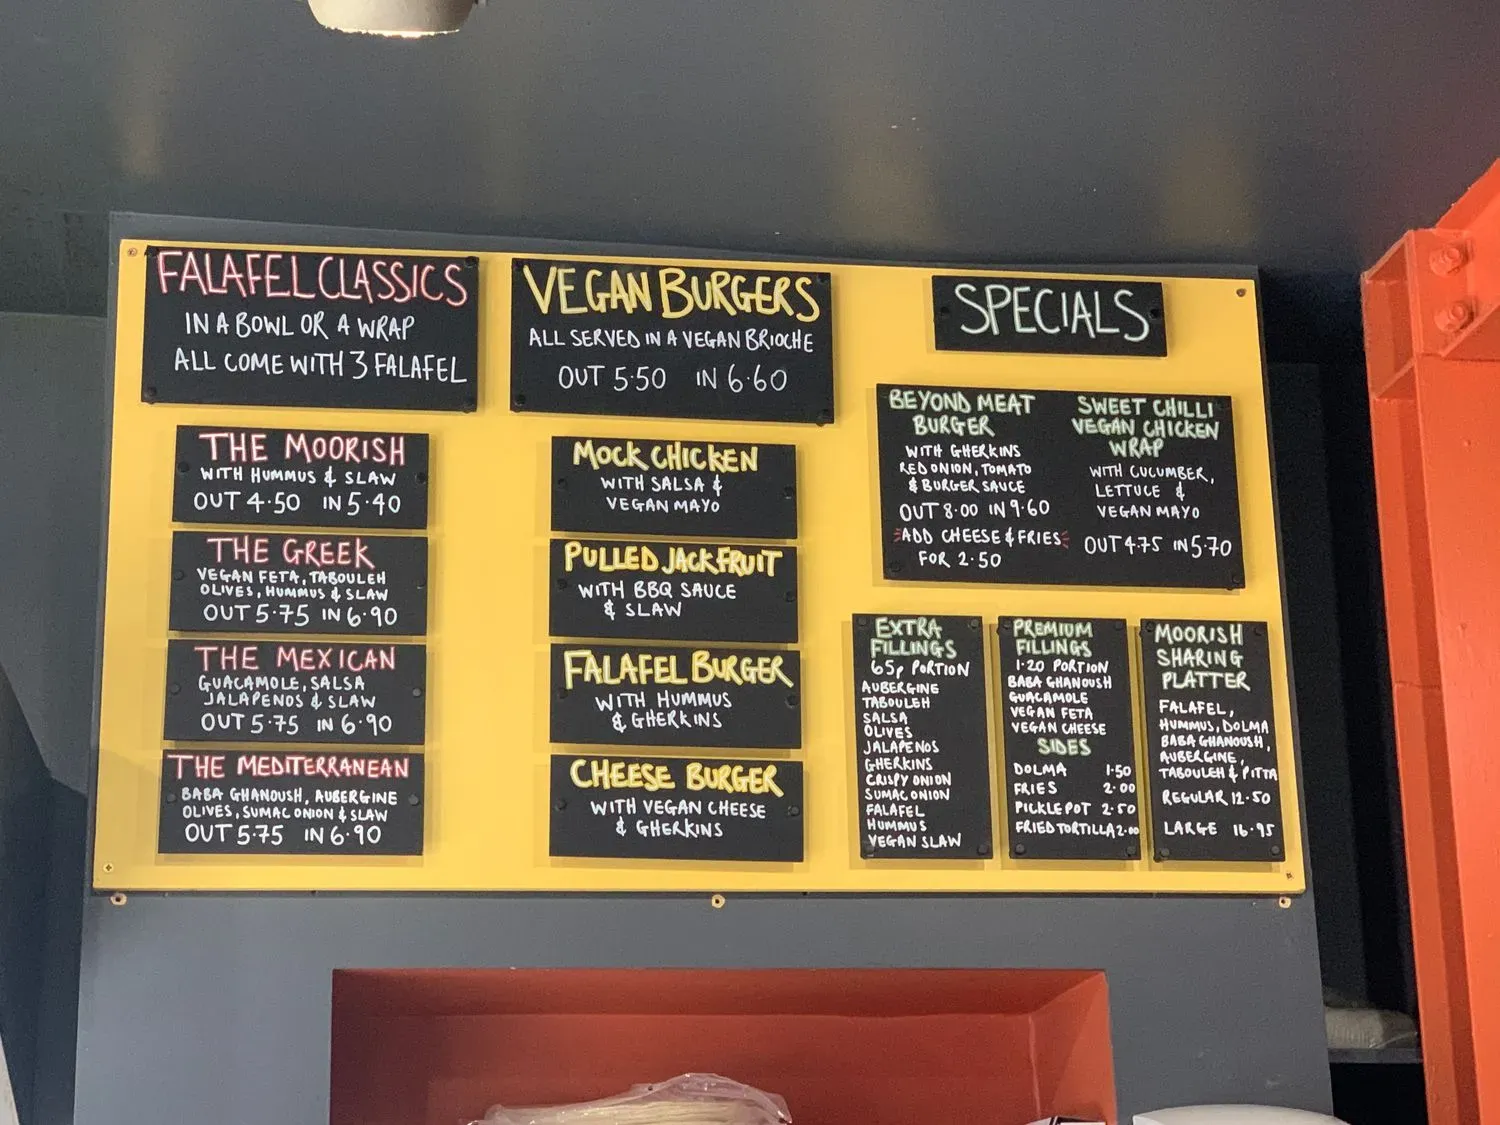 FALAFEL CLASSICS
IN A BOWL OR A WRAP
ALL COME WITH 3 FALAFEL
THE MOORISH
WITH HUMMUS & SLAW
OUT 4.50 IN 5.40
THE GREEK
VEGAN FETA, TABOULEH
OLIVES, HUMMUS & SLAW
OUT 5.75 IN 6.90
THE MEXICAN
GUACAMOLE, SALSA
JALAPENOS & SLAW
OUT 5.75 IN 6.90
THE MEDITERRANEAN
BABA GHANOUSH, AUBERGINE
OLIVES, SUMAC ONION & SLAW
OUT 5.75 IN 6.90
VEGAN BURGERS
ALL SERVED IN A VEGAN BRIOCHE
OUT 5.50 IN 6.60
MOCK CHICKEN
WITH SALSA &
VEGAN MAYO
PULLED JACKFRUIT
WITH BBQ SAUCE
& SLAW
FALAFEL BURGER
WITH HUMMUS
& GHERKINS
CHEESE BURGER
WITH VEGAN CHEESE
& GHERKINS
SPECIALS
BEYOND MEAT
BURGER
WITH GHERKINS
RED ONION, TOMATO
& BURGER SAUCE
OUT 8.00 IN 9.60
ADD CHEESE & FRIES
FOR 2.50
SWEET CHILLI
VEGAN CHICKEN
WRAP
WITH CUCUMBER,
LETTUCE &
VEGAN MAYO
OUT 4.75 IN 5.70
EXTRA
FILLINGS
65p PORTION
AUBERGINE
TABOULEH
SALSA
OLIVES
JALAPENOS
GHERKINS
CRISPY ONION
SUMAC ONION
FALAFEL
HUMMUS
VEGAN SLAW
PREMIUM
FILLINGS
1.20 PORTION
BABA GHANOUSH
GUACAMOLE
VEGAN FETA
VEGAN CHEESE
SIDES
DOLMA 1.50
FRIES 2.00
PICKLE POT 2.50
FRIED TORTILLA 2.00
MOORISH
SHARING
PLATTER
FALAFEL,
HUMMUS, DOLMA
BABA GHANOUSH,
AUBERGINE,
TABOULEH & PITTA
REGULAR 12.50
LARGE 16.95